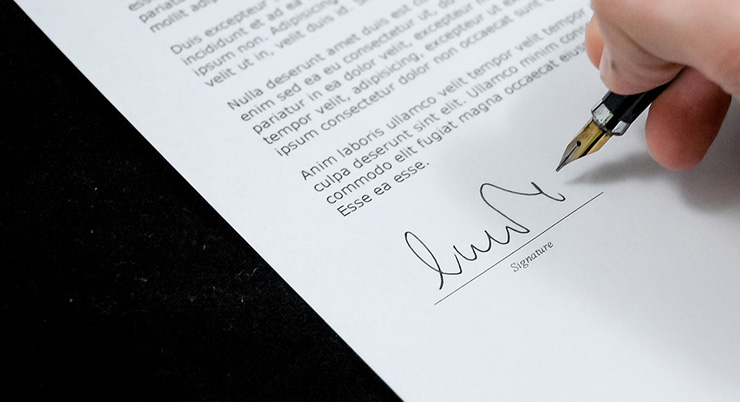 mollit adip
Duis excepteur
incididunt et ad ea
ipsum non. Adipisicing
velit ut in, velit duis id. S
Nulla deserunt amet duis est
enim sed ea eu consectetur ut, do
pariatur in ea dolor velit, excepteur
tempor velit, adipisicing, excepteur ut
ipsum consectetur dolor non occaecat sunt
Anim laboris ullamco velit tempor velit tempor
culpa deserunt sint elit. Ullamco minim com
commodo elit fugiat magna occaecat eius
Esse ea esse.
Signature